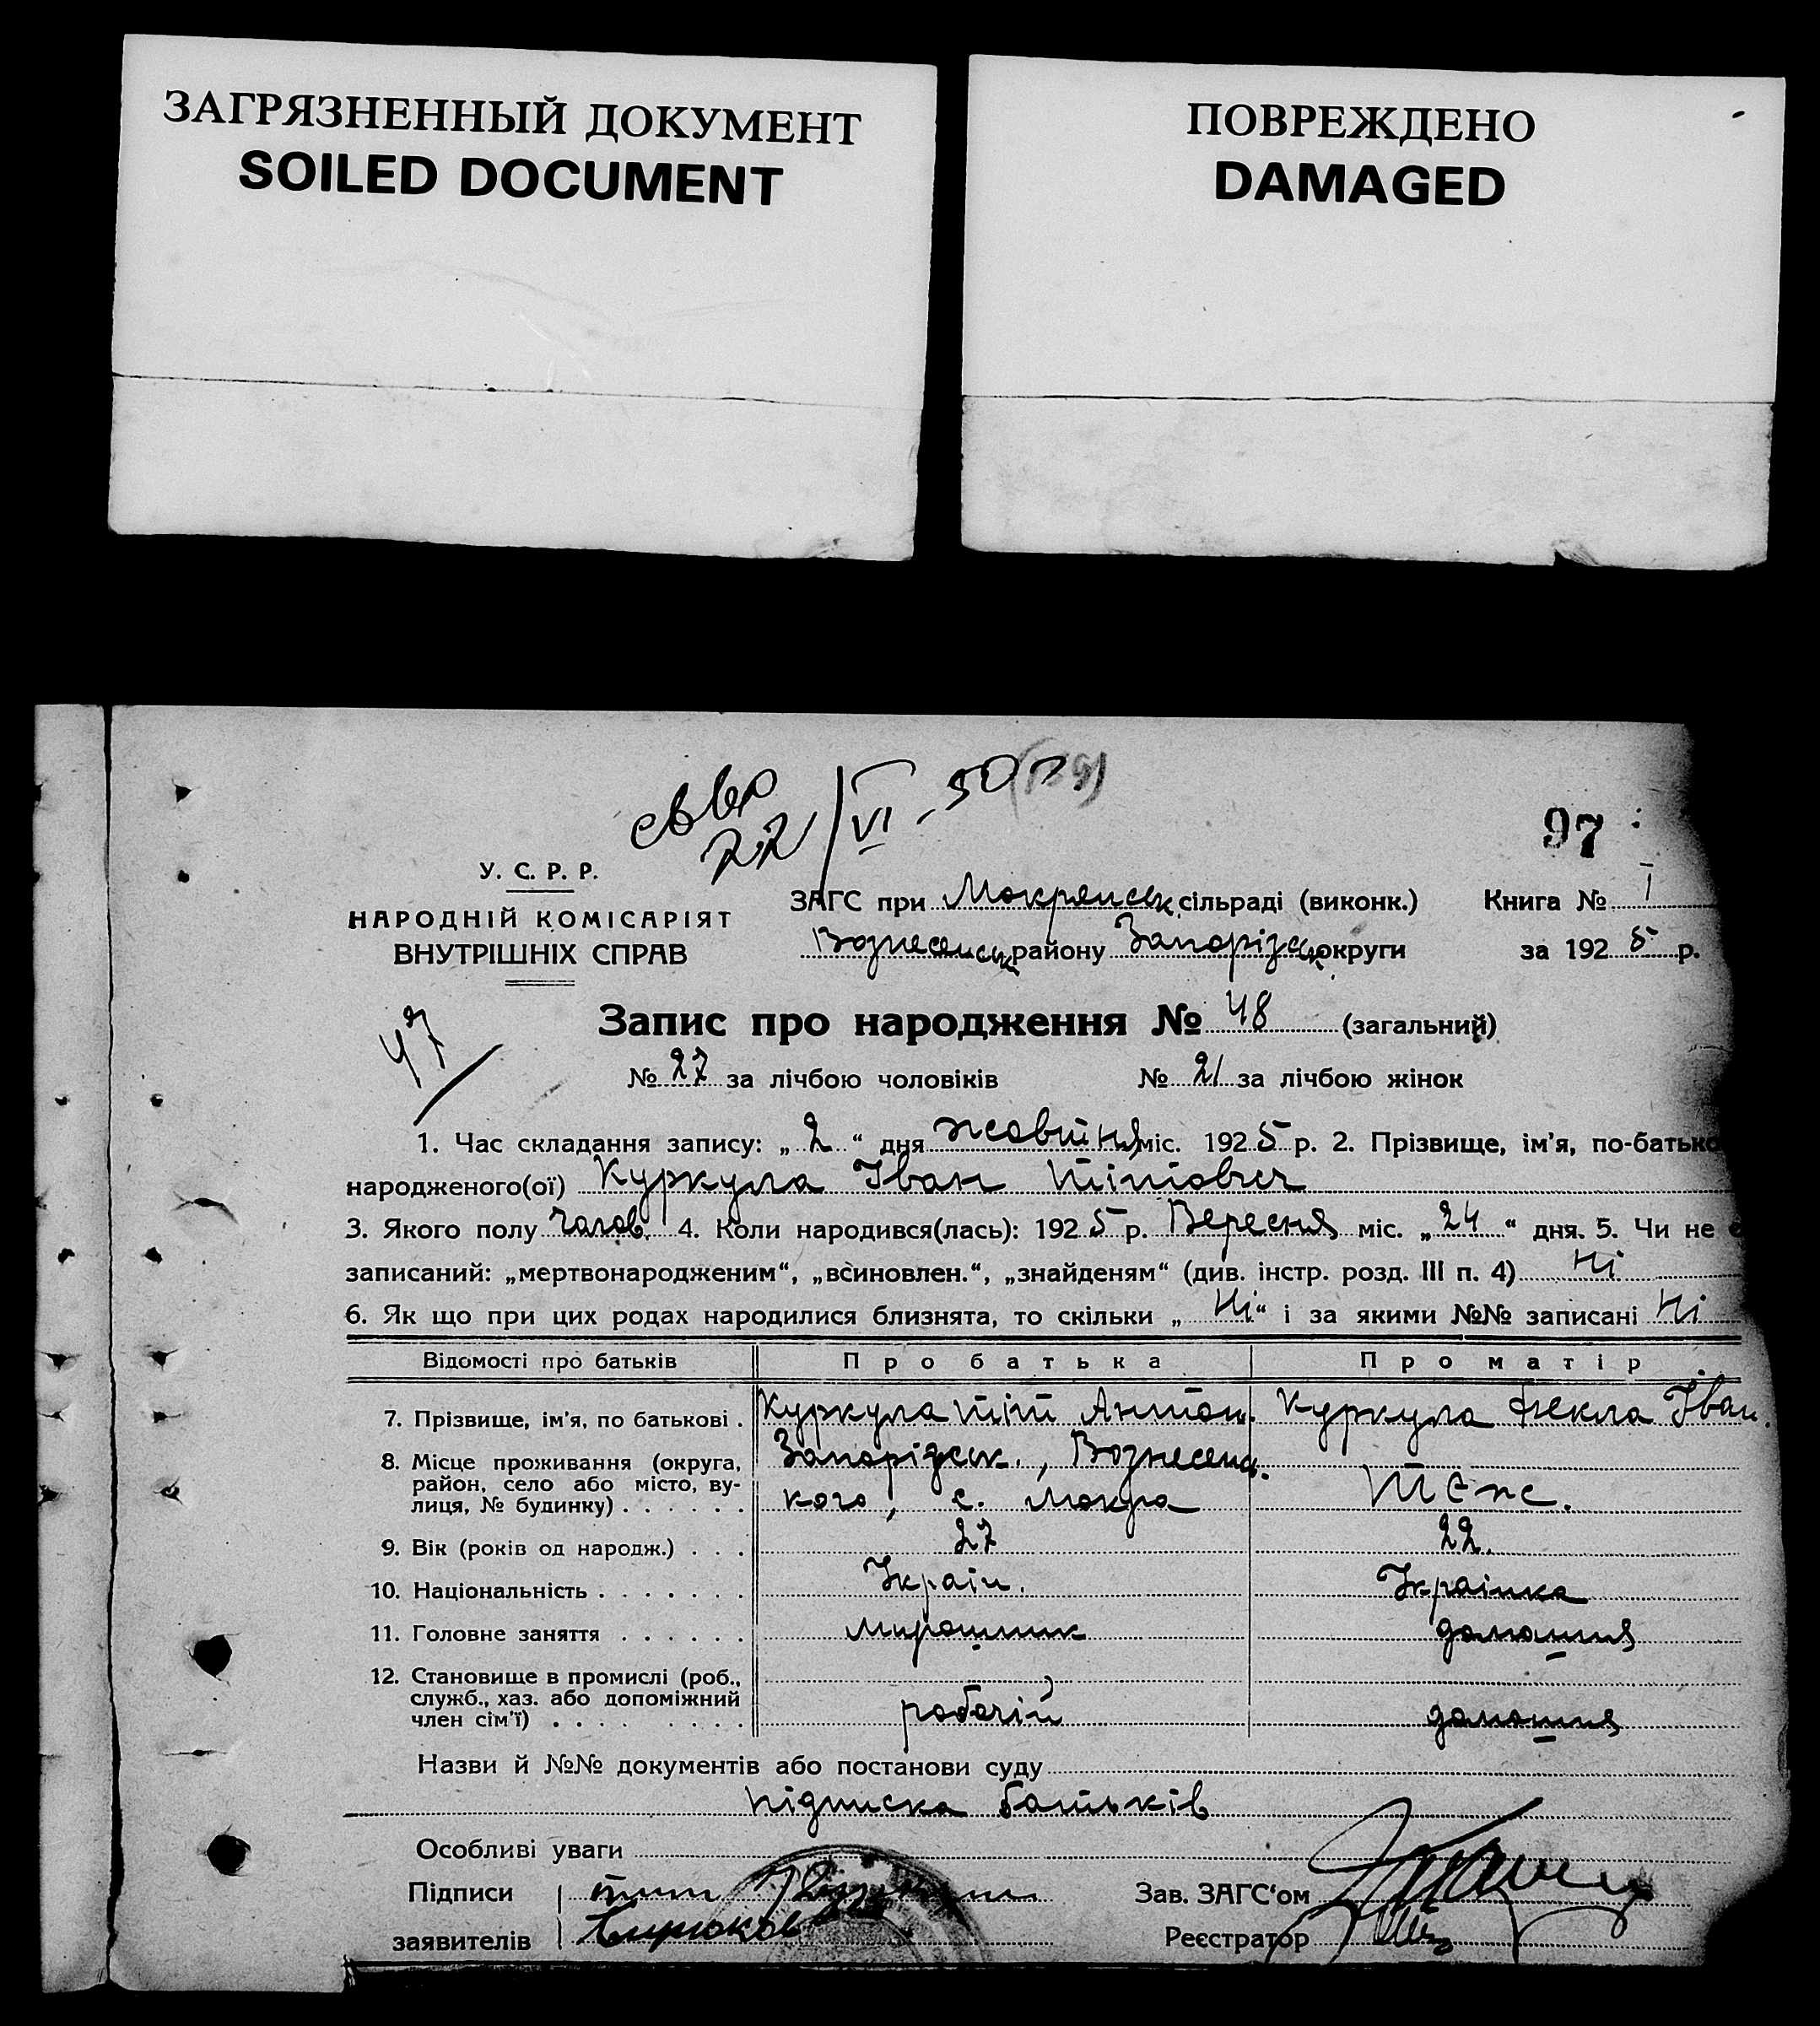 ЗАГРЯЗНЕННЫЙ ДОКУМЕНТ
SOILED DOCUMENT
ПОВРЕЖДЕНО
DAMAGED
22/VI-50
97
У. С. Р. Р.
НАРОДНІЙ КОМІСАРІЯТ
ВНУТРІШНІХ СПРАВ
ЗАГС при Мокрянськ. сільраді (виконк.) Книга № I
Вознесенськ району Запорізськ. округи за 1925 р.
47
Запис про народження № 48 (загальний)
№ 27 за лічбою чоловіків № 21 за лічбою жінок
1. Час складання запису: „2“ дня жовтня міс. 1925 р. 2. Прізвище, ім’я, по-батько
народженого(ої) Куркула Іван Тітович
3. Якого полу чолов. 4. Коли народився(лась): 1925 р. Вересня міс. „24“ дня. 5. Чи не є
записаний: „мертвонародженим“, „всиновлен.“, „знайденям“ (див. інстр. розд. III п. 4) Ні
6. Як що при цих родах народилися близнята, то скільки „Ні“ і за якими №№ записані Ні
Відомості про батьків Про батька Про матір
7. Прізвище, ім’я, по батькові . Куркула Тіт Антон. Куркула Текла Іван.
8. Місце проживання (округа, район, село або місто, вулиця, № будинку) . . . . . . Запорідськ., Вознесенського, с. Мокра Теж с.
9. Вік (років од народж.) . . . 27 22.
10. Національність . . . . . . . Україн. Українка
11. Головне заняття . . . . . . Мирошник домашня
12. Становище в промислі (роб., служб., хаз. або допоміжний член сім’ї) . . . . . . . . робочій домашня
Назви й №№ документів або постанови суду
підписка батьків
Особливі уваги
Підписи
заявителів
Зав. ЗАГС‘ом
Реєстратор